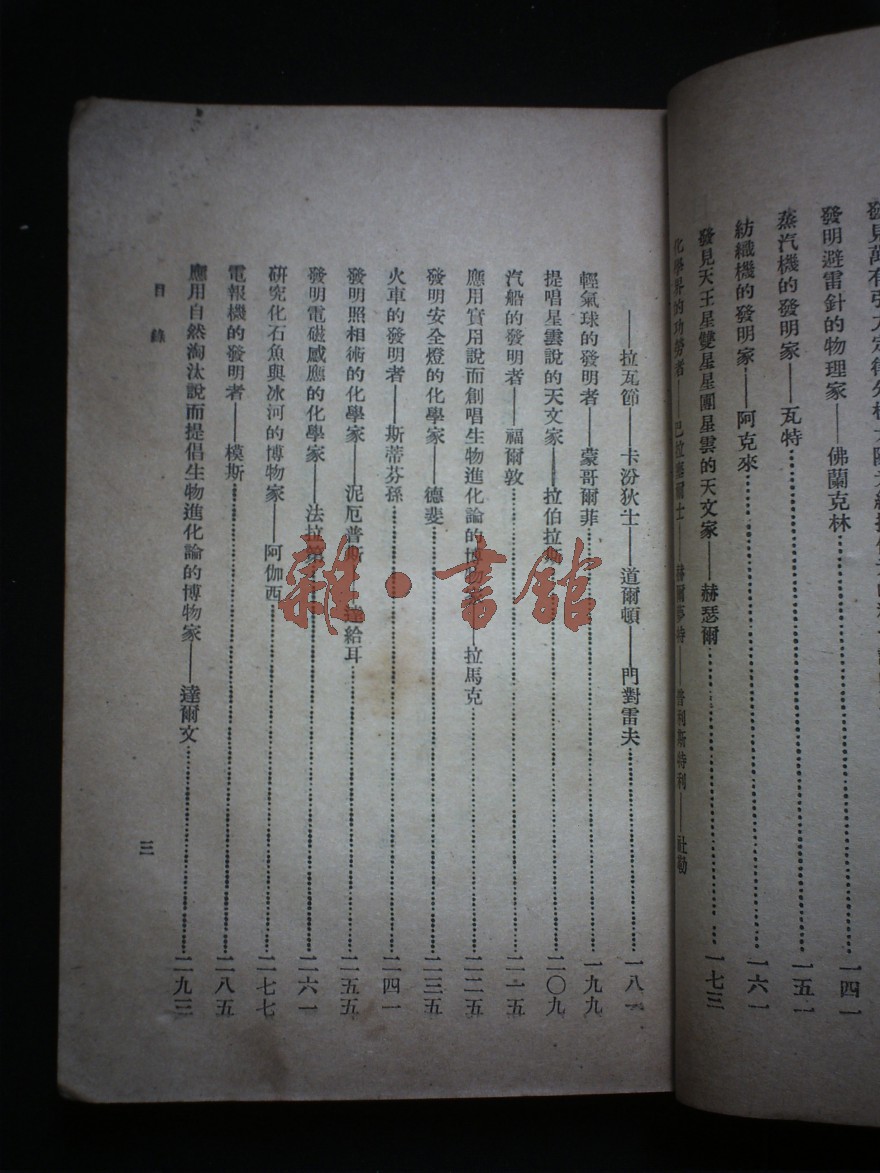 發明避雷針的物理家——佛蘭克林 一四一
蒸汽機的發明家——瓦特 一五一
紡織機的發明家——阿克來 一六一
發見天王星雙星星團星雲的天文家——赫瑟爾 一七三
化學界的功勞者——巴拉塞爾士——赫爾夢特——普利斯特利——社勒
——拉瓦節——卡汾狄士——道爾頓——門對雷夫 一八一
輕氣球的發明者——蒙哥爾菲 一九九
提唱星雲說的天文家——拉伯拉斯 二〇九
汽船的發明者——福爾敦 二一五
應用實用說而創唱生物進化論的博物家——拉馬克 二二五
發明安全燈的化學家——德斐 二三五
火車的發明者——斯蒂芬孫 二四一
發明照相術的化學家——泥厄普斯——達給耳 二五五
發明電磁感應的化學家——法拉第 二六一
研究化石魚與冰河的博物家——阿伽西 二七七
電報機的發明者——模斯 二八五
應用自然淘汰說而提倡生物進化論的博物家——達爾文 二九三
目錄
三
雜·書館